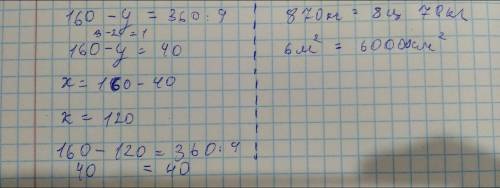 160 - y = 360 : 9
3-2=1
160 - y = 40
x = 160 - 40
x = 120
160 - 120 = 360 : 9
40 = 40
870кг = 8ц 70кг
6м² = 60000см²